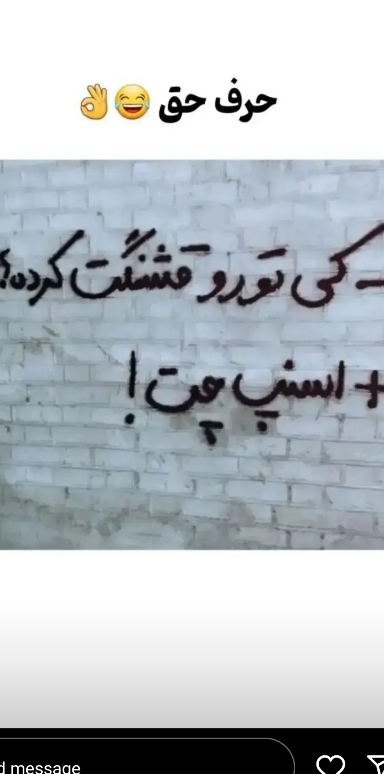 حرف حق 😂👌
- کی تورو قشنگت کرده؟
+ اسنپ چت!
d message